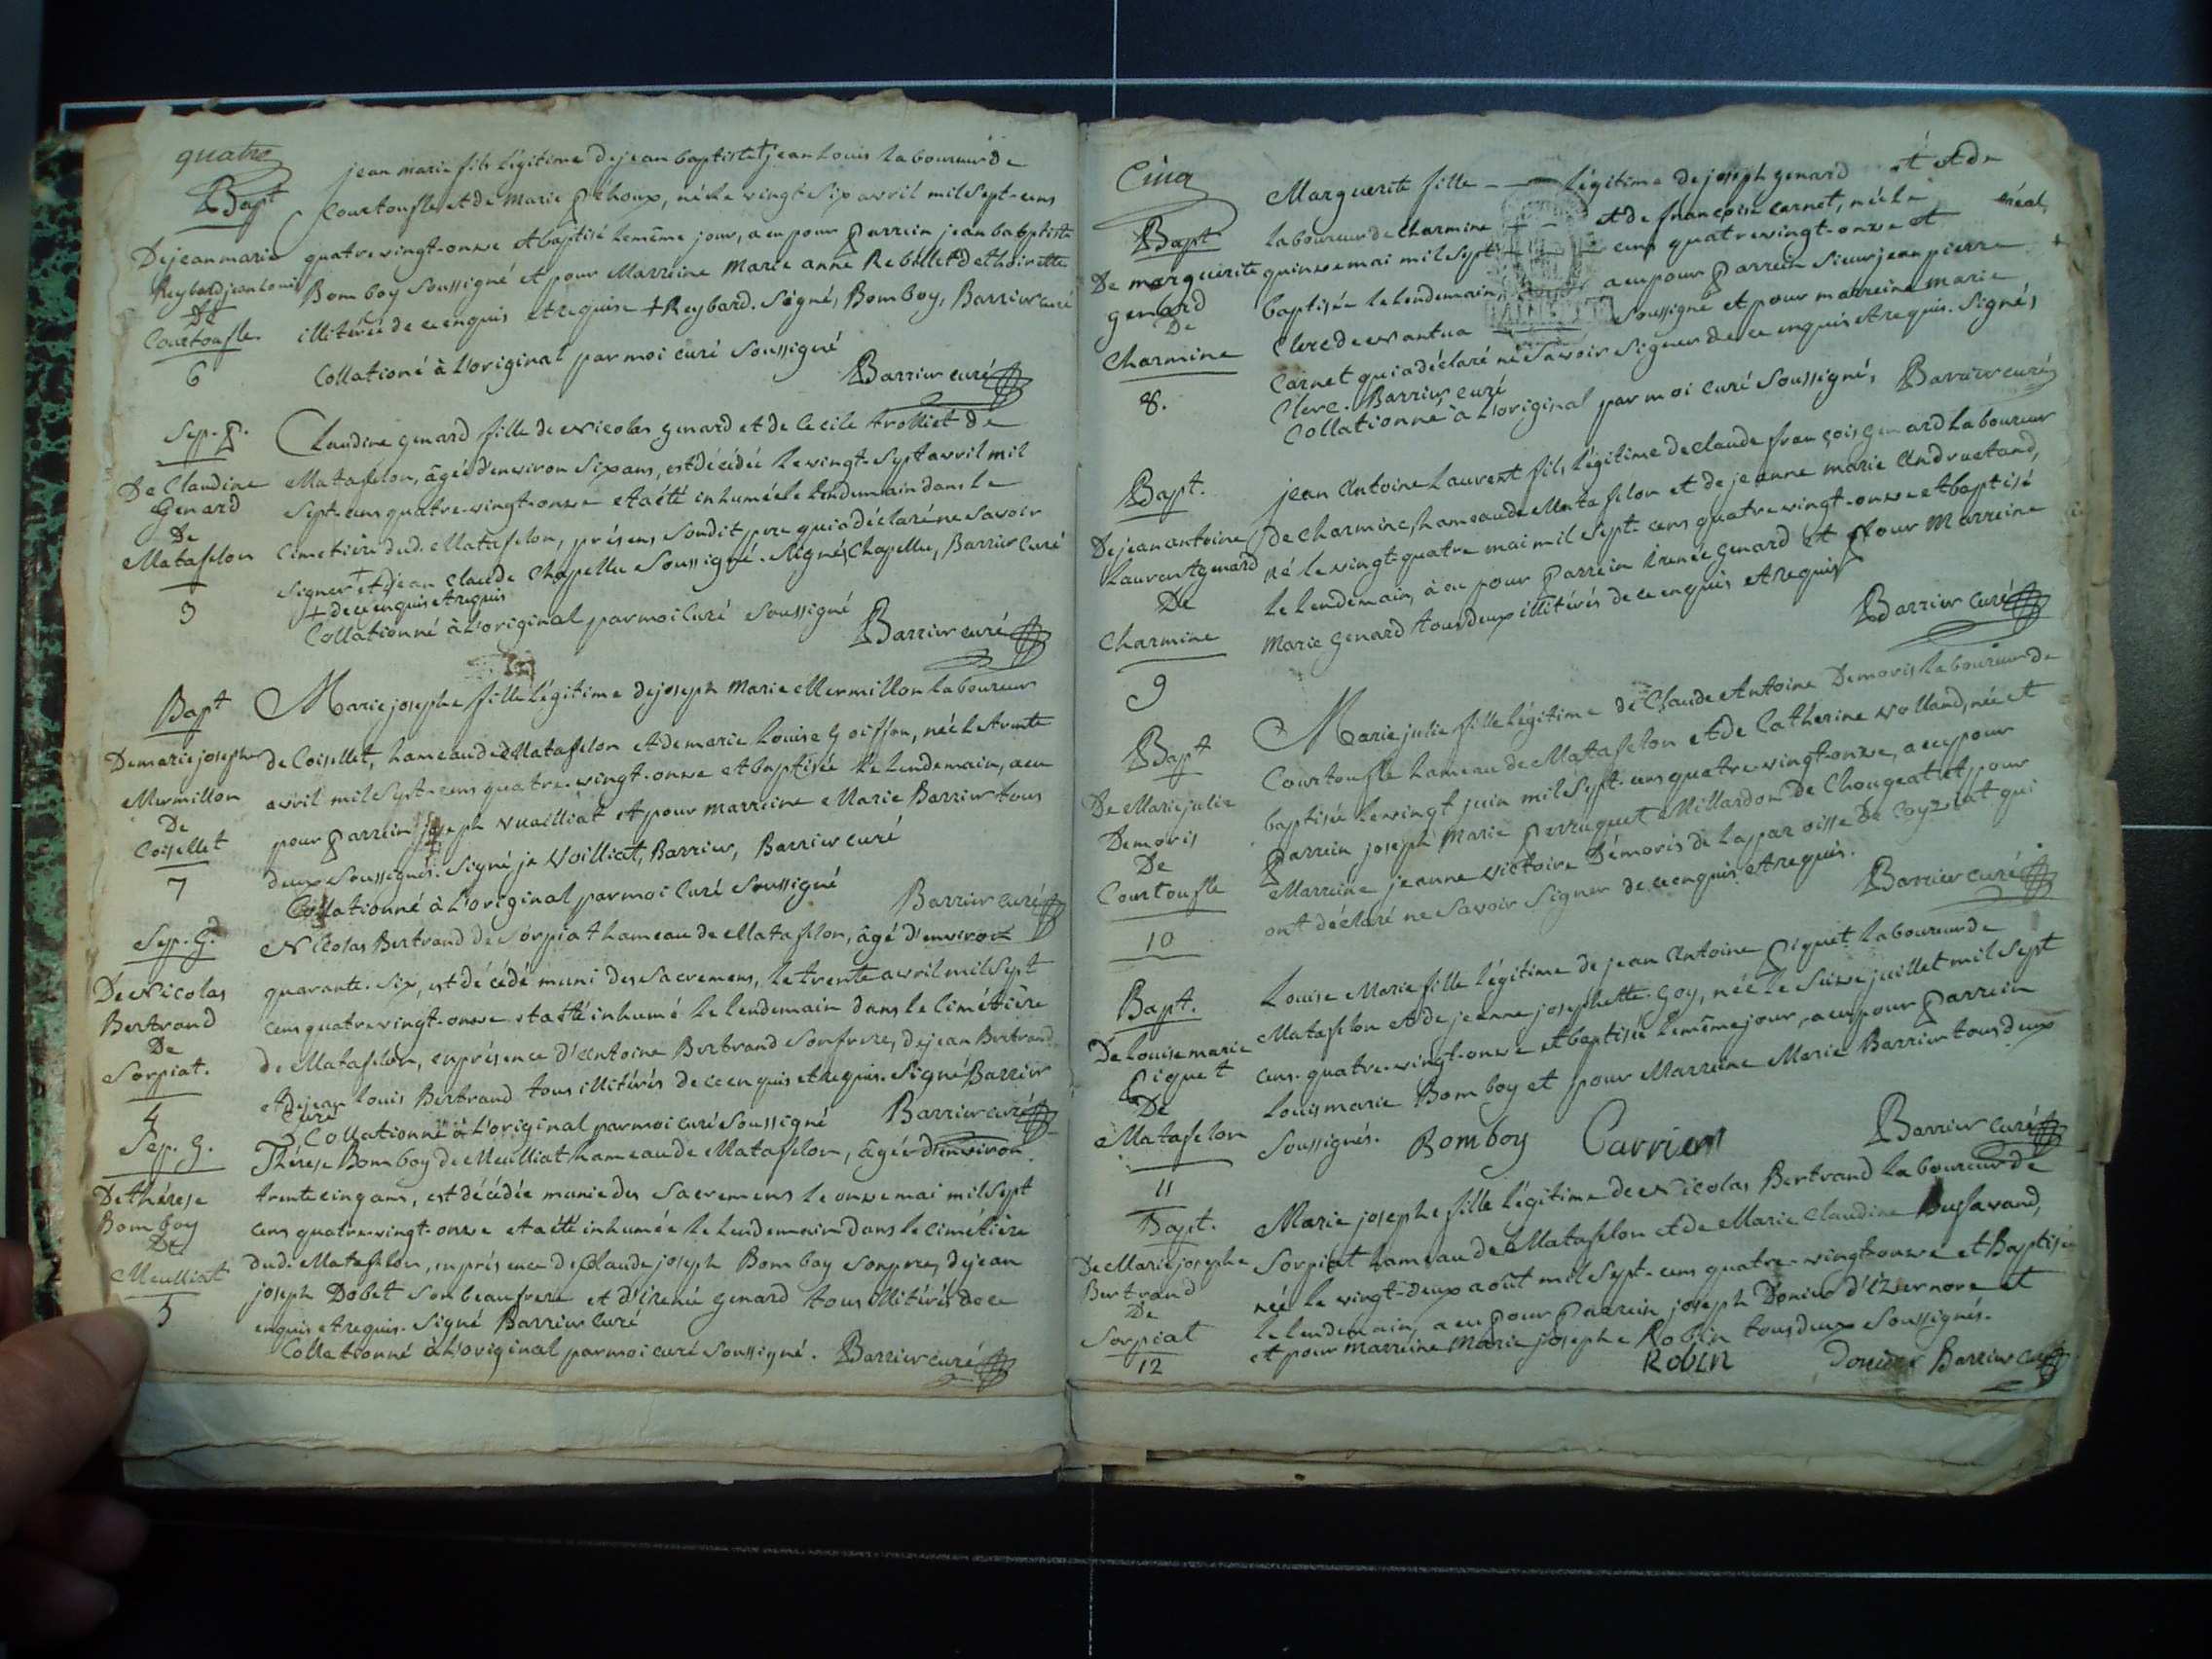 quatre
Bapt
De jean marie
Reybard jean Louis
De
Courtoufle.
6
jean marie fils légitime de jean baptiste + jean Louis laboureur de
Courtoufle et de Marie Pithoux, né le vingt-six avril mil sept-cens
quatre vingt-onze et baptisé le même jour, a eu pour parrein jean babptiste
Bomboy soussigné et pour Marreine Marie anne Rebillet de thoirette
illitérée de ce enquis et requise + Reybard. Signé, Bomboy, Barrier curé
Collationé à L'original par moi curé soussigné
Barrier curé
Sep. P.
De Claudine
Genard
De
Matafelon
3
Claudine genard fille de Nicolas genard et de Cecile trolliet de
Matafelon, âgée d'environ six ans, est décédée le vingt-sept avril mil
sept-cens quatre-vingt-onze et a été inhumée le lendemain dans le
Cimetière dud. Matafelon, présens, sondit pere qui a déclaré ne savoir
signer + et jean Claude Chapellu soussigné. Signés, Chapellu, Barrier Curé
+ de ce enquis et requis
Collationné à L'original par moi Curé soussigné
Barrier curé
Bapt
De marie josephe
Mermillon
De
Coisellet
7
Marie josephe fille légitime de joseph Marie Mermillon laboureur
de Coisellet, hameau de Matafelon et de marie Louise Goiffon, née le trente
avril mil sept-cens quatre-vingt-onze et baptisée le lendemain, a eu
pour parrein joseph Vuailliat et pour marreine Marie Barrier tous
deux soussignés. Signé je Voilliat, Barrier, Barrier curé
Collationné à L'original par moi Curé soussigné
Barrier curé
Sep. G.
De Nicolas
Bertrand
De
Sorpiat.
4
Nicolas Bertrand de Sorpiat hameau de Matafelon, âgé d'environ
quarante-six, est décédé muni des sacremens, le trente avril mil sept
cens quatre vingt-onze et a été inhumé le lendemain dans le cimetière
de Matafelon, en présence d'Antoine Bertrand son frere, de jean Bertrand
et de jean Louis Bertrand tous illitérés de ce enquis et requis. Signé Barrier
curé
Collationné à L'original par moi curé soussigné Barrier curé
Sep. G.
De thérese
Bomboy
De
Meulliat
5
Thérese Bomboy de Meulliat hameau de Matafelon, âgée d'environ
trente cinq ans, est décédée munie des Sacremens le onze mai mil sept
cens quatre-vingt-onze et a été inhumée le lendemain dans le cimétière
dud. Matafelon, en présence de Claude joseph Bomboy son pere, de jean
joseph Dobet son beau frere et d'irenée genard tous illitérés de ce
enquis et requis. Signé Barrier Curé
Collationné à L'original par moi curé soussigné. Barrier curé
Cinq
Bapt
De marguerite
genard
De
Charmine
8.
Marguerite fille - - légitime de joseph genard et et de
laboureur de Charmine + - et de françoise Carnet, née le
quinze mai mil sept cens quatre vingt-onze et
baptisée le lendemain, a eu pour parrein sieur jean pierre
Clerc de Nantua soussigné et pour marreine marie
Carnet qui a déclaré ne savoir signer de ce enquis et requis. Signés
Clerc. Barrier curé
Collationné à L'original par moi curé soussigné, Barrier curé
Bapt.
De jean antoine
Laurent genard
De
Charmine
9
jean Antoine Laurent fils légitime de Claude françois Genard laboureur
de Charmine, hameau de Matafelon et de jeanne marie Andruetand,
né le vingt-quatre mai mil sept cens quatre vingt-onze et baptisé
le lendemain, à eu pour parrein irenée Genard et pour Marreine
Marie Genard tous deux illitérés de ce enquis et requis
Barrier curé
Bapt
De Marie julie
Demoris
De
Courtoufle
10
Marie julie fille légitime de Claude Antoine Demoris laboureur de
Courtoufle hameau de Matafelon et de Catherine Volland, née et
baptisée le vingt juin mil sept-cens quatre-vingt-onze, a eu pour
Parrein joseph Marie perruquet Millardon de Chougeat et pour
Marreine jeanne victoire Démoris de la paroisse de Coyziat qui
ont déclaré ne savoir signer de ce enquis et requis.
Barrier curé
Bapt.
De Louise marie
Piquet
De
Matafelon
11
Louise Marie fille légitime de jean Antoine Piquet laboureur de
Matafelon et de jeanne josephette Goy, née le seize juillet mil sept
cens-quatre-vingt-onze et baptisée le même jour, a eu pour parrein
Louis marie Bomboy et pour Marreine Marie Barrier tous deux
soussignés. Bomboy Barrier Barrier curé
Bapt.
De Marie josephe
Bertrand
De
Sorpiat
12
Marie josephe fille légitime de Nicolas Bertrand laboureur de
Sorpiat hameau de Matafelon et de Marie Claudine
née le vingt-deux août mil sept-cens quatre-vingt-onze et Baptisée
le lendemain, a eu pour parrein joseph Donier d'izernore et
et pour marreine Marie josephe Robin tous deux soussignés.
Robin Donier Barrier curé